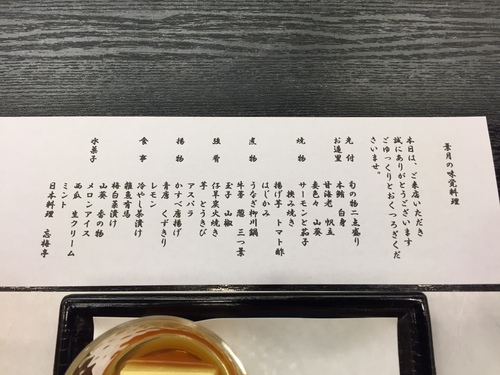 葉月の味覚料理
本日は、ご来店いただき
誠にありがとうございます
ごゆっくりとおくつろぎくだ
さいませ。
先付 旬の物二点盛り
お造里 本鮪 白身
甘海老 帆立
妻色々 山葵
焼物 サーモンと茄子
挟み焼き
揚げ芋 トマト酢
はじかみ
煮物 うなぎ柳川鍋
牛蒡 葱 三つ葉
玉子 山椒
強肴 仔羊炭火焼き
芋 とうきび
アスパラ
揚物 かすべ唐揚げ
青唐 くずきり
レモン
食事 冷やし茶漬け
雑魚有馬
梅白菜漬け
山葵 香の物
水菓子 メロンアイス
西瓜 生クリーム
ミント
日本料理 忘梅亭